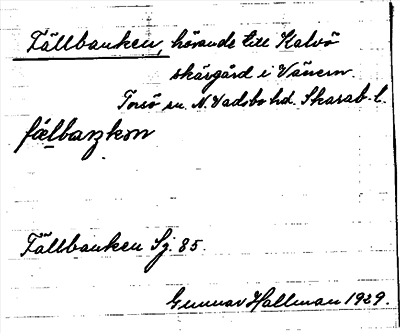 Fällbanken, hörande till Kalvö
skärgård i Vänern.
Torsö sn. N. Vadsbo hd. Skarab. l.
fälbaŋkən
Fällbanken Sj. 85.
Gunnar Hallman 1929.